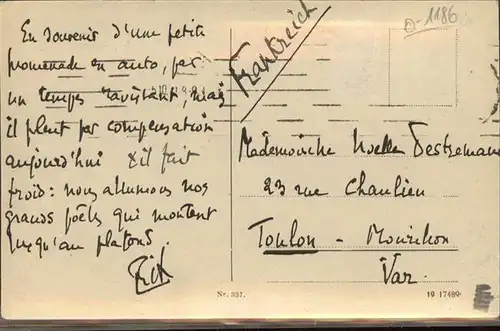 En souvenir d'une petite
promenade en auto, par
un temps ravissant, mais
il pleut par compensation
aujourd'hui & il fait
froid: nous allumons nos
grands poêles qui montent
jusqu'au plafond.
Frankreich
1186
Mademoiselle Noelle Destremau
23 rue Chaulieu
Toulon - Mourillon
Var.
Nr. 337.
19 17489